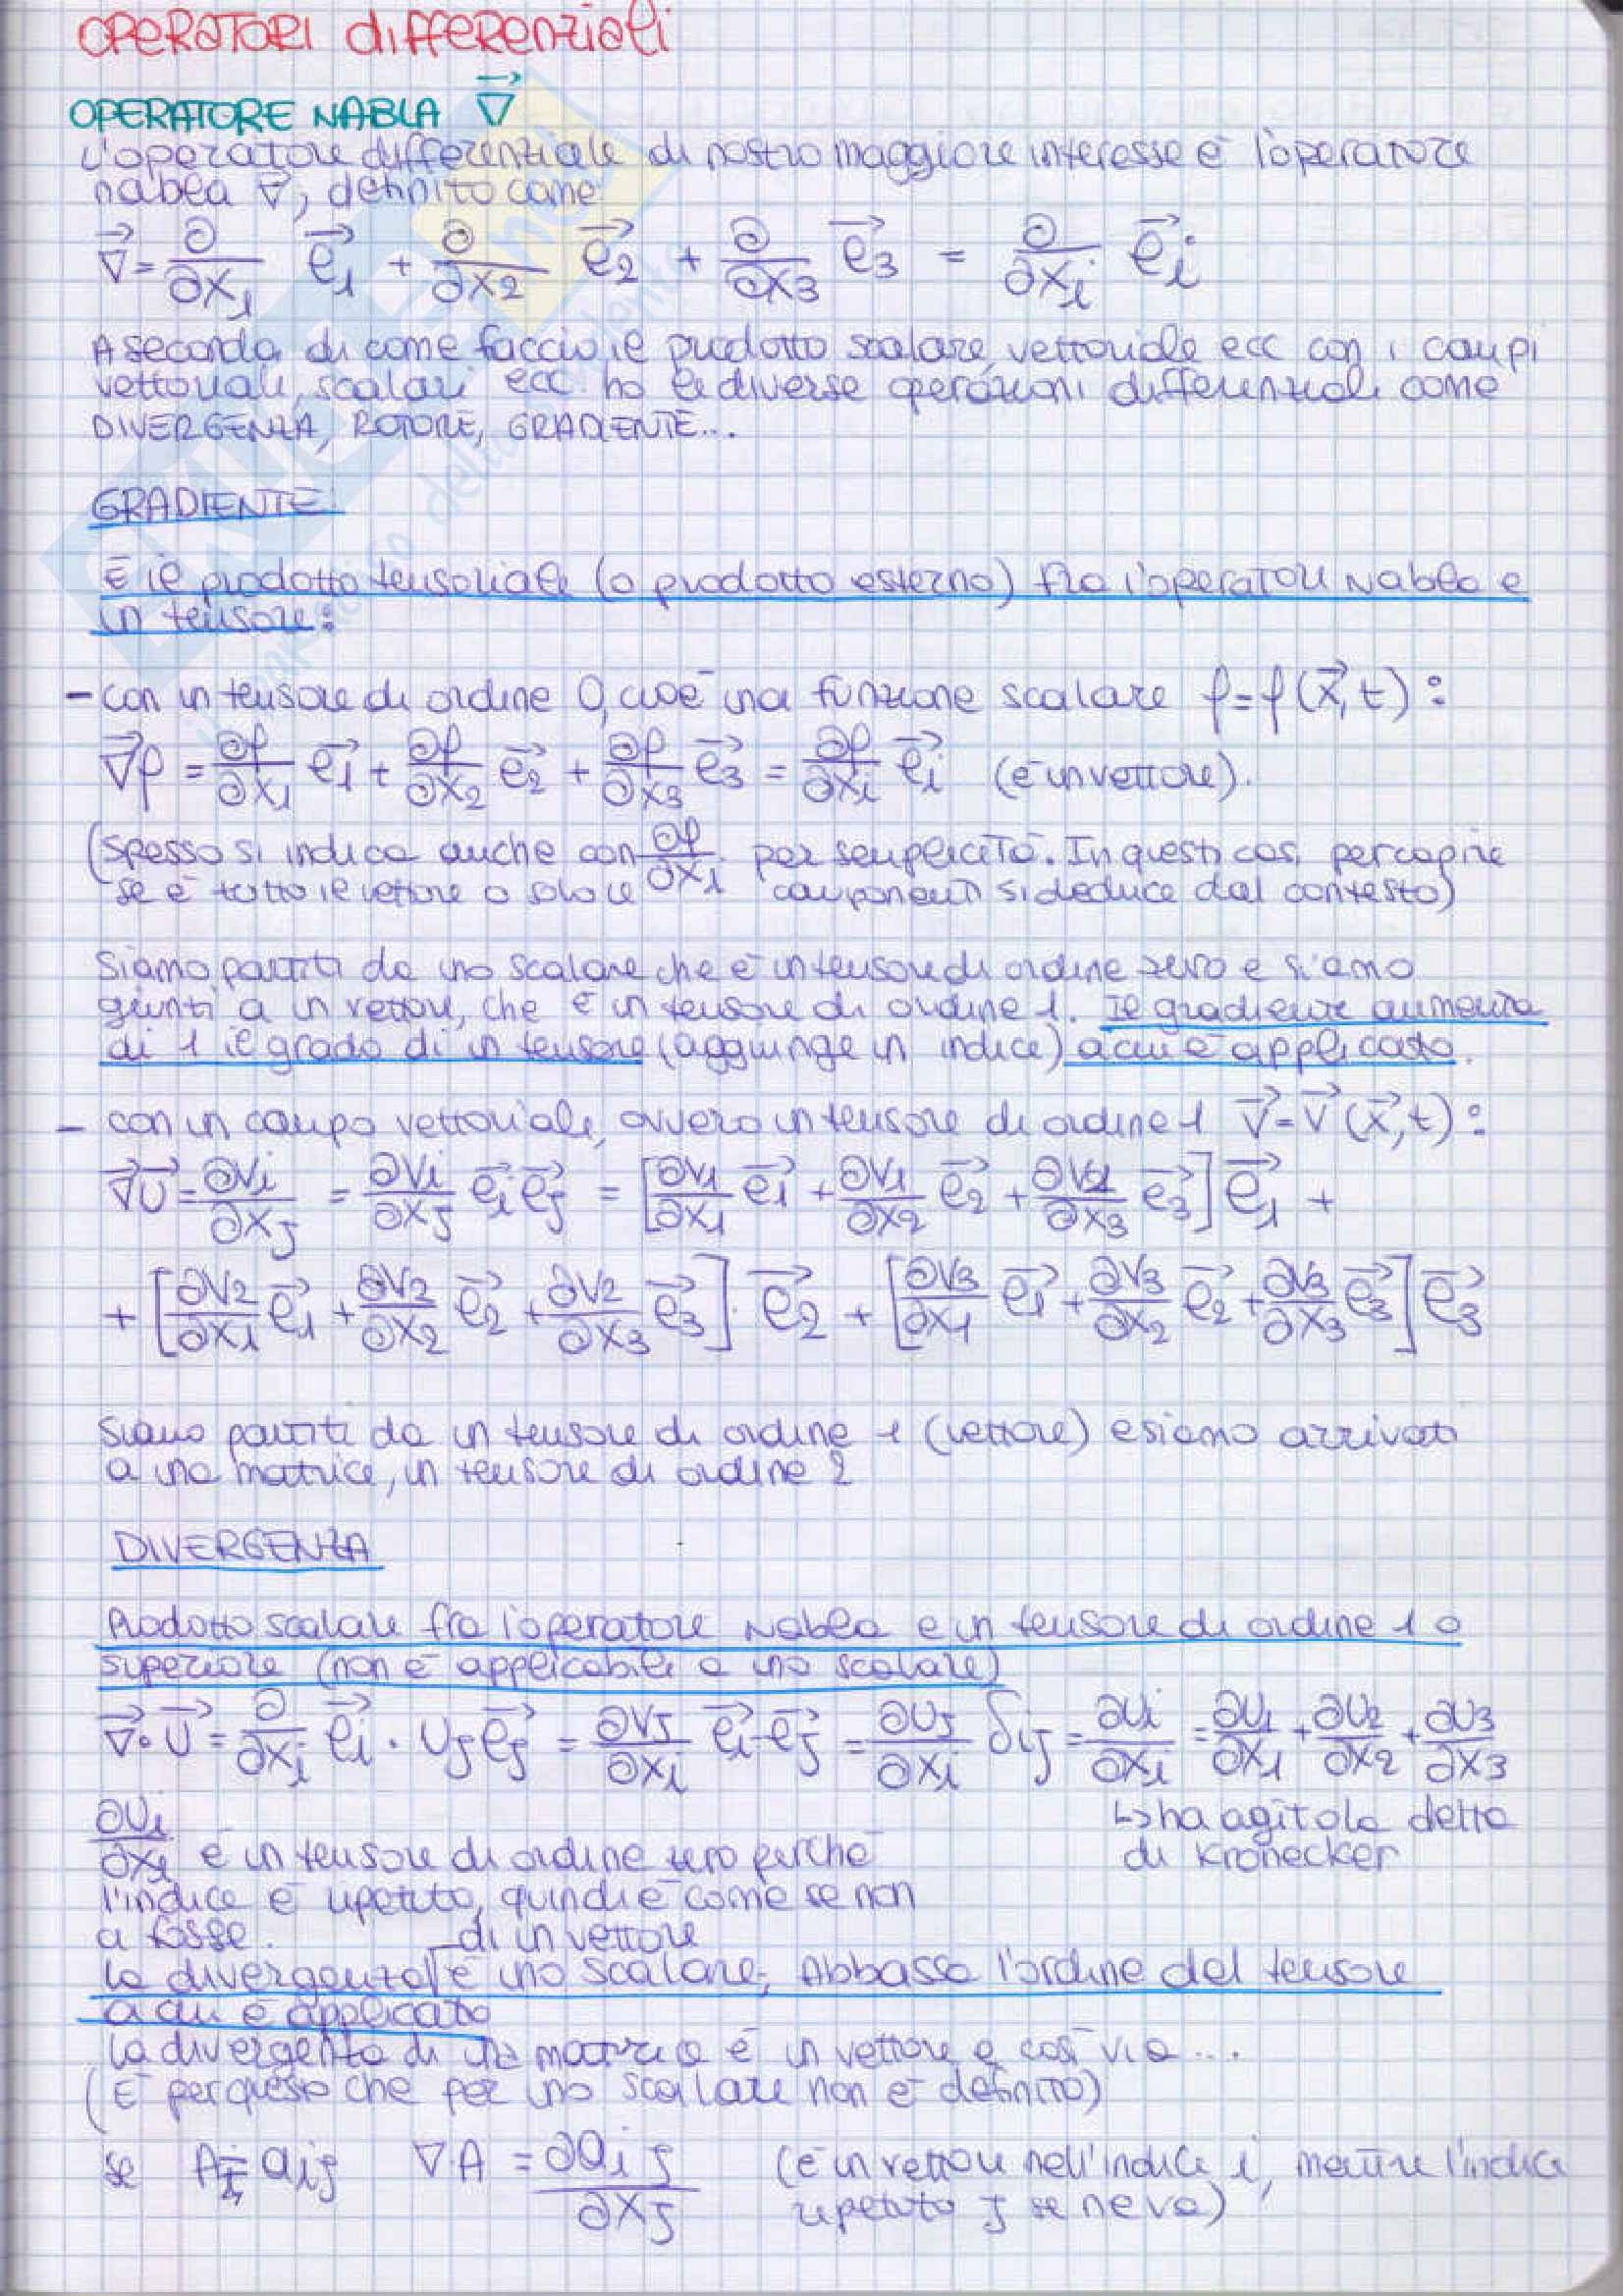 OPERATORI differenziali
OPERATORE NABLA ∇⃗
L'operatore differenziale di nostro maggiore interesse è l'operatore
nabla ∇, definito come
∇⃗ = ∂/∂x₁ e⃗₁ + ∂/∂x₂ e⃗₂ + ∂/∂x₃ e⃗₃ = ∂/∂xᵢ e⃗ᵢ
A seconda di come faccio il prodotto scalare, vettoriale ecc con i campi
vettoriali, scalari ecc ho le diverse operazioni differenziali come
DIVERGENZA, ROTORE, GRADIENTE...
GRADIENTE:
È il prodotto tensoriale (o prodotto esterno) fra l'operatore Nabla e
un tensore:
- con un tensore di ordine 0, cioè una funzione scalare f=f(x⃗,t):
∇⃗f = ∂f/∂x₁ e⃗₁ + ∂f/∂x₂ e⃗₂ + ∂f/∂x₃ e⃗₃ = ∂f/∂xᵢ e⃗ᵢ (è un vettore).
(Spesso si indica anche con ∂f/∂xᵢ per semplicità. In questi casi per capire
se è tutto il vettore o solo le componenti si deduce dal contesto)
Siamo partiti da uno scalare che è un tensore di ordine zero e siamo
giunti a un vettore, che è un tensore di ordine 1. Il gradiente aumenta
di 1 il grado di un tensore (aggiunge un indice) a cui è applicato.
- con un campo vettoriale, ovvero un tensore di ordine 1 v⃗=v⃗(x⃗,t):
∇⃗v⃗ = ∂vᵢ/∂xⱼ = ∂vᵢ/∂xⱼ e⃗ᵢ e⃗ⱼ = [∂v₁/∂x₁ e⃗₁ + ∂v₁/∂x₂ e⃗₂ + ∂v₁/∂x₃ e⃗₃] e⃗₁ +
+ [∂v₂/∂x₁ e⃗₁ + ∂v₂/∂x₂ e⃗₂ + ∂v₂/∂x₃ e⃗₃]. e⃗₂ + [∂v₃/∂x₁ e⃗₁ + ∂v₃/∂x₂ e⃗₂ + ∂v₃/∂x₃ e⃗₃] e⃗₃
Siamo partiti da un tensore di ordine 1 (vettore) e siamo arrivati
a una matrice, un tensore di ordine 2
DIVERGENZA
Prodotto scalare fra l'operatore Nabla e un tensore di ordine 1 o
superiore (non è applicabile a uno scalare)
∇⃗·v⃗ = ∂/∂xᵢ e⃗ᵢ · vⱼ e⃗ⱼ = ∂vⱼ/∂xᵢ e⃗ᵢ·e⃗ⱼ = ∂vⱼ/∂xᵢ δᵢⱼ = ∂vᵢ/∂xᵢ = ∂v₁/∂x₁ + ∂v₂/∂x₂ + ∂v₃/∂x₃
↳ ha agito la delta
di Kronecker
∂vᵢ/∂xᵢ è un tensore di ordine zero perché
l'indice è ripetuto, quindi è come se non
ci fosse.
di un vettore
La divergenza è uno scalare; Abbassa l'ordine del tensore
a cui è applicato
La divergenza di una matrice è un vettore e così via...
(È per questo che per uno scalare non è definito)
se A = aᵢⱼ ∇·A = ∂aᵢⱼ/∂xⱼ (è un vettore nell'indice i, mentre l'indice
ripetuto j se ne va)